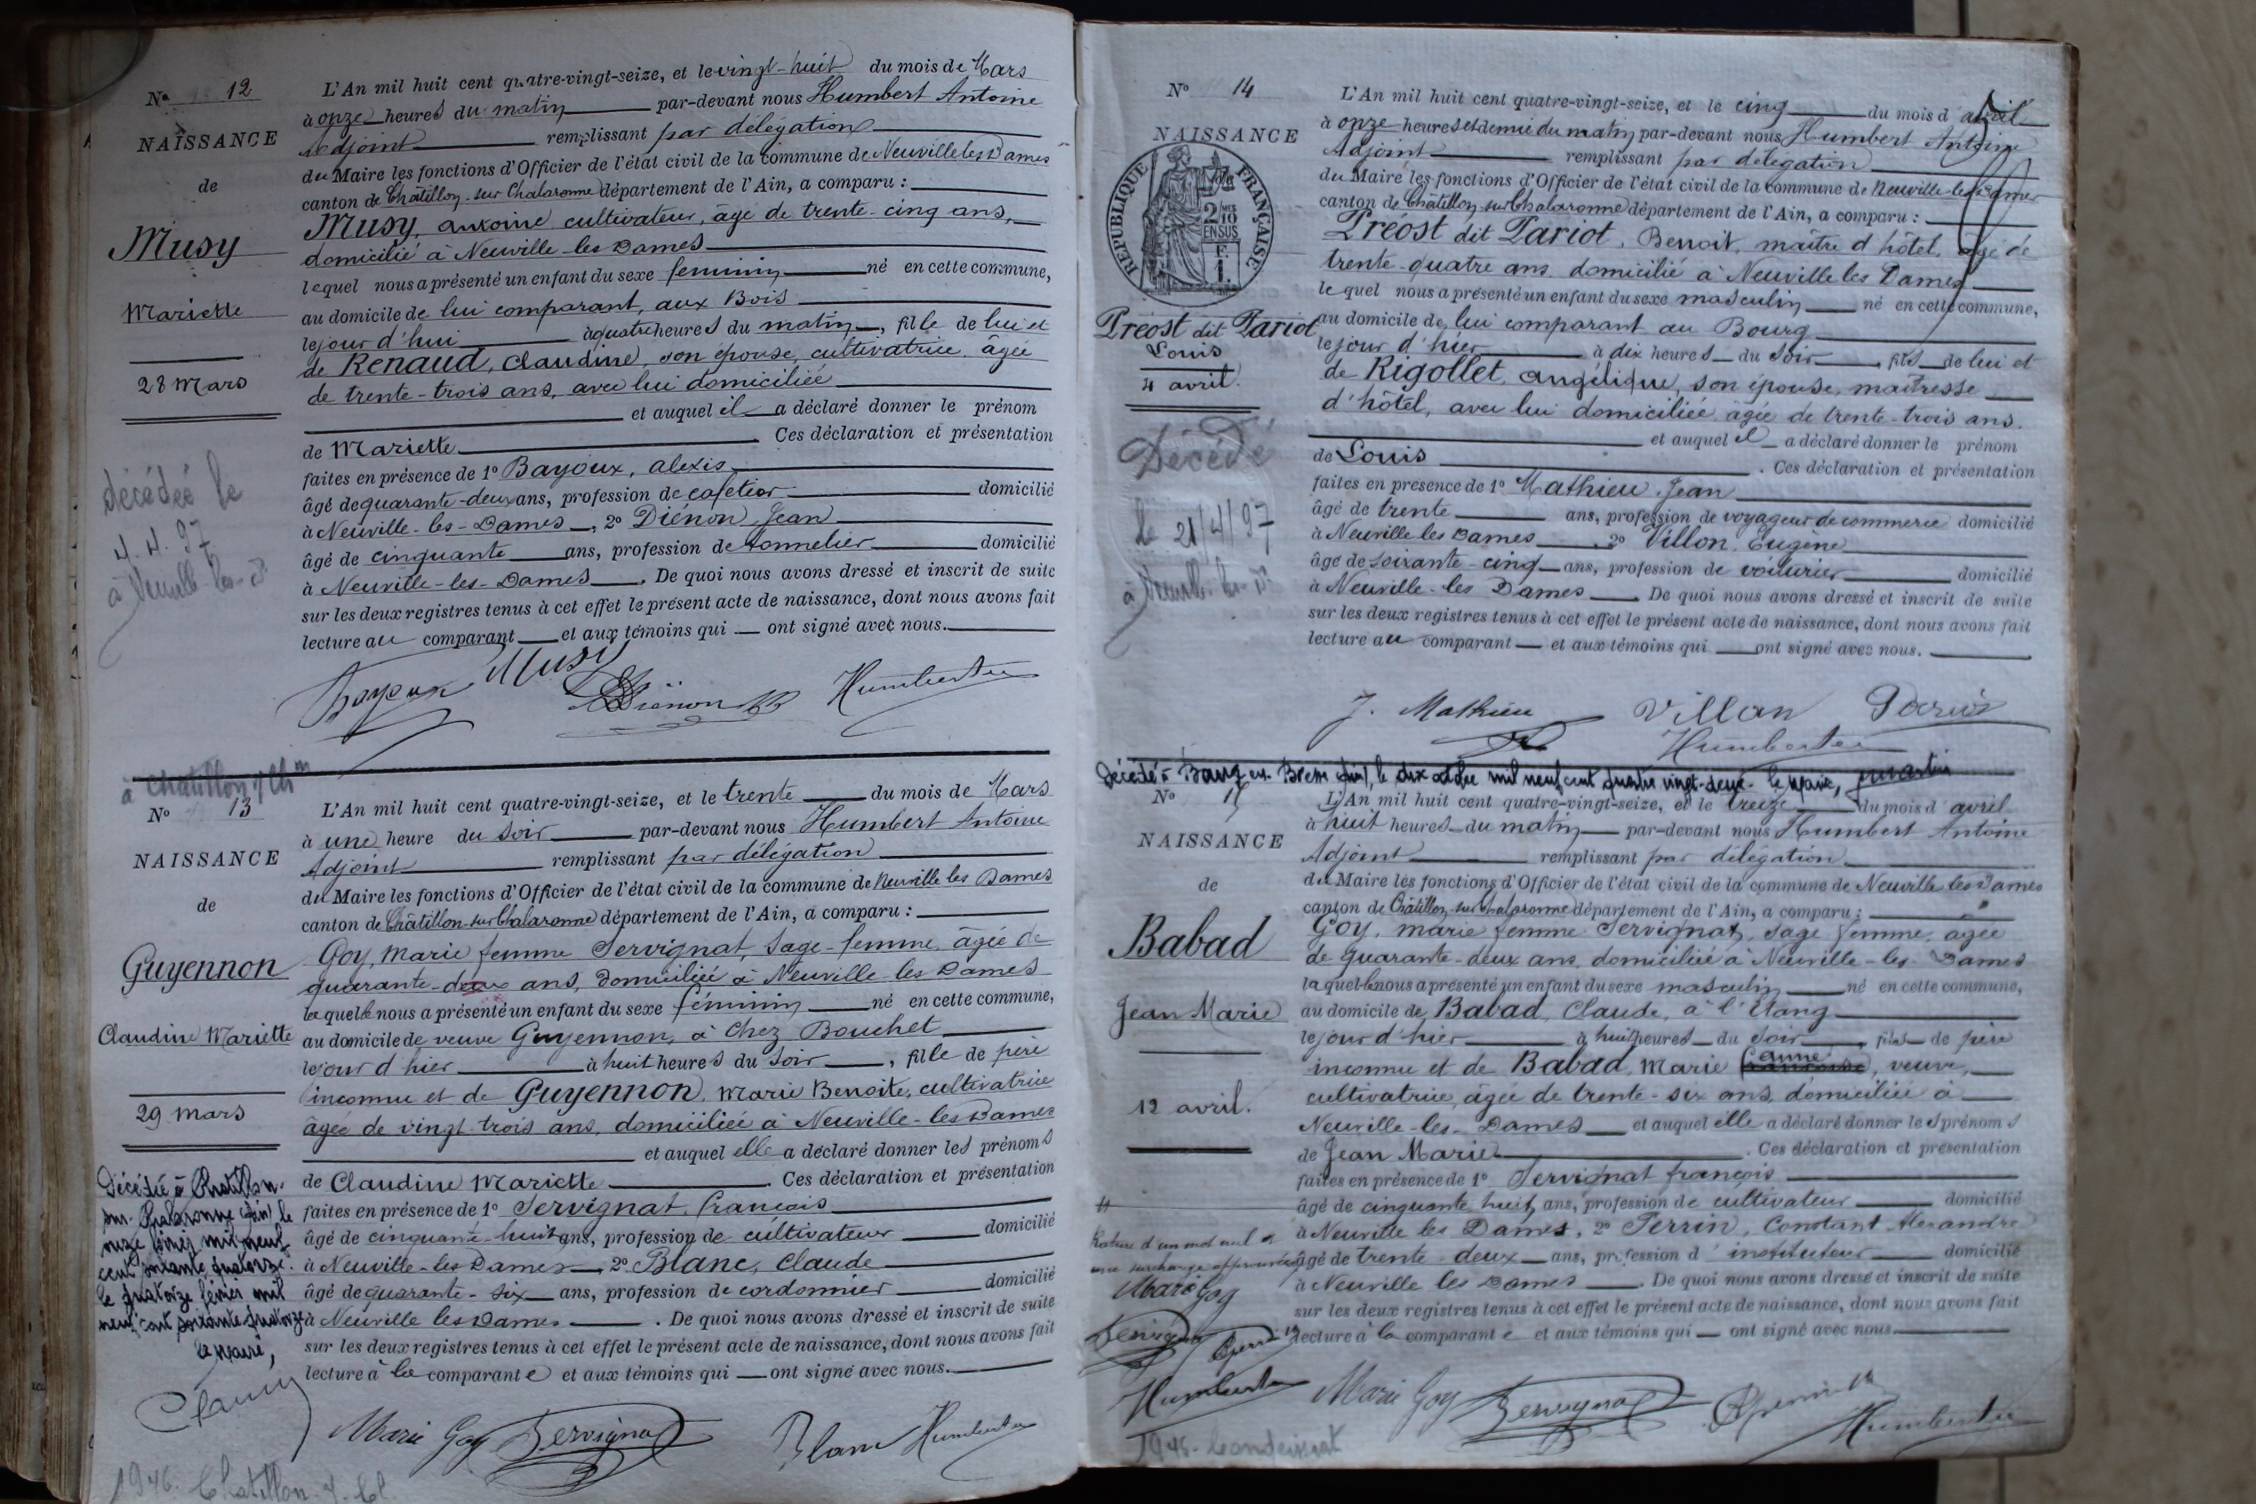 No 12
NAISSANCE
de
Musy
Mariette
28 Mars
décédée le
4.4.97
à Neuville-les-D
L'An mil huit cent quatre-vingt-seize, et le vingt-huit du mois de Mars
à onze heures du matin par-devant nous Humbert Antoine
Adjoint remplissant par délégation
du Maire les fonctions d'Officier de l'état civil de la commune de Neuville les Dames
canton de Châtillon-sur-Chalaronne département de l'Ain, a comparu :
Musy, antoine cultivateur, âgé de trente-cinq ans,
domicilié à Neuville-les-Dames
lequel nous a présenté un enfant du sexe feminin né en cette commune,
au domicile de lui comparant, aux Bois
le jour d'hui à quatre heures du matin, fille de lui et
de Renaud, claudine, son épouse, cultivatrice âgée
de trente-trois ans, avec lui domiciliée
et auquel il a déclaré donner le prénom
de Mariette Ces déclaration et présentation
faites en présence de 1o Bayoux, alexis
âgé de quarante-deux ans, profession de cafetier domicilié
à Neuville-les-Dames, 2o Diénon Jean
âgé de cinquante ans, profession de tonnelier domicilié
à Neuville-les-Dames. De quoi nous avons dressé et inscrit de suite
sur les deux registres tenus à cet effet le présent acte de naissance, dont nous avons fait
lecture au comparant et aux témoins qui ont signé avec nous.
Bayoux Musy Diénon Humbert
à Chatillon s/ Chne
No 13
NAISSANCE
de
Guyennon
Claudine Mariette
29 mars
Décédée à Chatillon-
sur-Chalaronne (Ain) le
onze février mil neuf
cent soixante quatorze.
le quatorze février mil
neuf cent soixante quatorze
le maire,
L'An mil huit cent quatre-vingt-seize, et le trente du mois de Mars
à une heure du soir par-devant nous Humbert Antoine
Adjoint remplissant par délégation
du Maire les fonctions d'Officier de l'état civil de la commune de Neuville les Dames
canton de Châtillon-sur-Chalaronne département de l'Ain, a comparu :
Goy, Marie femme Servignat, Sage-femme, âgée de
quarante-deux ans, domiciliée à Neuville-les Dames
laquelle nous a présenté un enfant du sexe féminin né en cette commune,
au domicile de veuve Guyennon, à chez Bouchet
le jour d'hier à huit heures du soir, fille de père
inconnu et de Guyennon, Marie Benoite, cultivatrice
âgée de vingt trois ans, domiciliée à Neuville-les Dames
et auquel elle a déclaré donner les prénoms
de Claudine Mariette. Ces déclaration et présentation
faites en présence de 1o Servignat, francois
âgé de cinquante-huit ans, profession de cultivateur domicilié
à Neuville-les Dames, 2o Blanc, claude
âgé de quarante-six ans, profession de cordonnier domicilié
à Neuville les Dames. De quoi nous avons dressé et inscrit de suite
sur les deux registres tenus à cet effet le présent acte de naissance, dont nous avons fait
lecture à la comparante et aux témoins qui ont signé avec nous.
Marie Goy Servignat Blanc Humbert
1946. Chatillon s. Ch.
No 14
NAISSANCE
RÉPUBLIQUE FRANÇAISE
Préost dit Pariot
Louis
4 avril.
Décédé
le 21/4/97
à Neuville-les-D
L'An mil huit cent quatre-vingt-seize, et le cinq du mois d'avril
à onze heures et demie du matin par-devant nous Humbert Antoine
Adjoint remplissant par délégation
du Maire les fonctions d'Officier de l'état civil de la commune de Neuville-les Dames
canton de Châtillon sur Chalaronne département de l'Ain, a comparu :
Préost dit Pariot, Benoit, maître d'hôtel, âgé de
trente-quatre ans domicilié à Neuville les Dames
lequel nous a présenté un enfant du sexe masculin né en cette commune,
au domicile de lui comparant au Bourg
le jour d'hier à dix heures du soir, fils de lui et
de Rigollet, angélique, son épouse, maîtresse
d'hôtel, avec lui domiciliée âgée de trente-trois ans.
et auquel il a déclaré donner le prénom
de Louis. Ces déclaration et présentation
faites en présence de 1o Mathieu, Jean
âgé de trente ans, profession de voyageur de commerce domicilié
à Neuville les Dames. 2o Villon, Eugène
âgé de soixante-cinq ans, profession de voiturier domicilié
à Neuville-les Dames. De quoi nous avons dressé et inscrit de suite
sur les deux registres tenus à cet effet le présent acte de naissance, dont nous avons fait
lecture au comparant et aux témoins qui ont signé avec nous.
J. Mathieu Villon
Humbert
Décédé à Bourg en Bresse (Ain), le dix octobre mil neuf cent quatre vingt-deux. le maire,
No 15
NAISSANCE
de
Babad
Jean Marie
12 avril.
Rature d'un mot nul et
une surcharge approuvée
Marie Goy
Servignat Perrin
Humbert
L'An mil huit cent quatre-vingt-seize, et le treize du mois d'avril
à huit heures du matin par-devant nous Humbert Antoine
Adjoint remplissant par délégation
du Maire les fonctions d'Officier de l'état civil de la commune de Neuville les Dames
canton de Châtillon sur Chalaronne département de l'Ain, a comparu :
Goy, marie femme Servignat, sage femme, âgée
de quarante-deux ans, domiciliée à Neuville-les-Dames
laquelle nous a présenté un enfant du sexe masculin né en cette commune,
au domicile de Babad, Claude, à l'Étang
le jour d'hier à huit heures du soir, fils de père
inconnu et de Babad, Marie anne, veuve,
cultivatrice, âgée de trente-six ans, domiciliée à
Neuville-les-Dames et auquel elle a déclaré donner les prénoms
de Jean Marie. Ces déclaration et présentation
faites en présence de 1o Servignat françois
âgé de cinquante huit ans, profession de cultivateur domicilié
à Neuville les Dames, 2o Perrin, Constant Alexandre
âgé de trente-deux ans, profession d'instituteur domicilié
à Neuville les Dames. De quoi nous avons dressé et inscrit de suite
sur les deux registres tenus à cet effet le présent acte de naissance, dont nous avons fait
lecture à la comparante et aux témoins qui ont signé avec nous.
Marie Goy Servignat Perrin
Humbert
1946